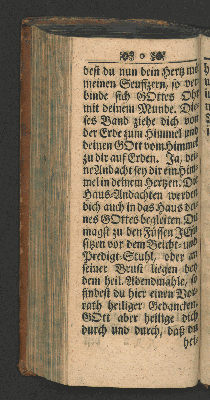 o
dest du nun dein Hertz mit
meinen Seuffzern, so ver-
binde sich GOttes Ohr
mit deinem Munde. Die-
ses Band ziehe dich von
der Erde zum Himmel und
deinen GOtt vom Himmel
zu dir auf Erden. Ja, dei-
ne Andacht sey dir ein Him-
mel in deinem Hertzen. Die
Haus-Andachten werden
dich auch in das Haus dei-
nes GOttes begleiten. Du
magst zu den Füssen JEsu
sitzen vor dem Beicht- und
Predigt-Stuhl, oder an
seiner Brust liegen bey
dem heil. Abendmahle, so
findest du hier einen Vor-
rath heiliger Gedancken.
GOtt aber heilige dich
durch und durch, daß du
hei-